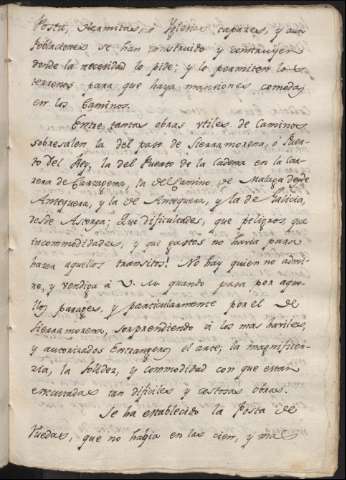 Posta, Hermitas, è Yglesias capaces, y aun
Poblaciones se han construido y construyen
donde la necesidad lo pide; y lo permiten los
terrenos para que haya mansiones comodas
en los Caminos.
Entre tantas obras utiles de Caminos
sobresalen la del paso de Sierramorena, o Puer-
to del Rey, la del Puerto de la Cadena en la Car-
rera de Cartagena, la del Camino de Malaga desde
Antequera, y la de Antequera, y la de Galicia,
desde Astorga; Que dificultades, que peligros, que
incommodidades, y que gastos no havia para
hacer aquellos transitos! No hay quien no admi-
re, y vendiga á V. M. quando pasa por aque-
llos parages, y particularmente por el de
Sierramorena, sorprendiendo á los mas haviles,
y autorizados Extrangeros el arte, la magnificen-
cia, la solidez, y commodidad con que estan
executadas tan dificiles y costosas obras.
Se ha establecido la Posta de
Ruedas, que no habia en las cien, y mas